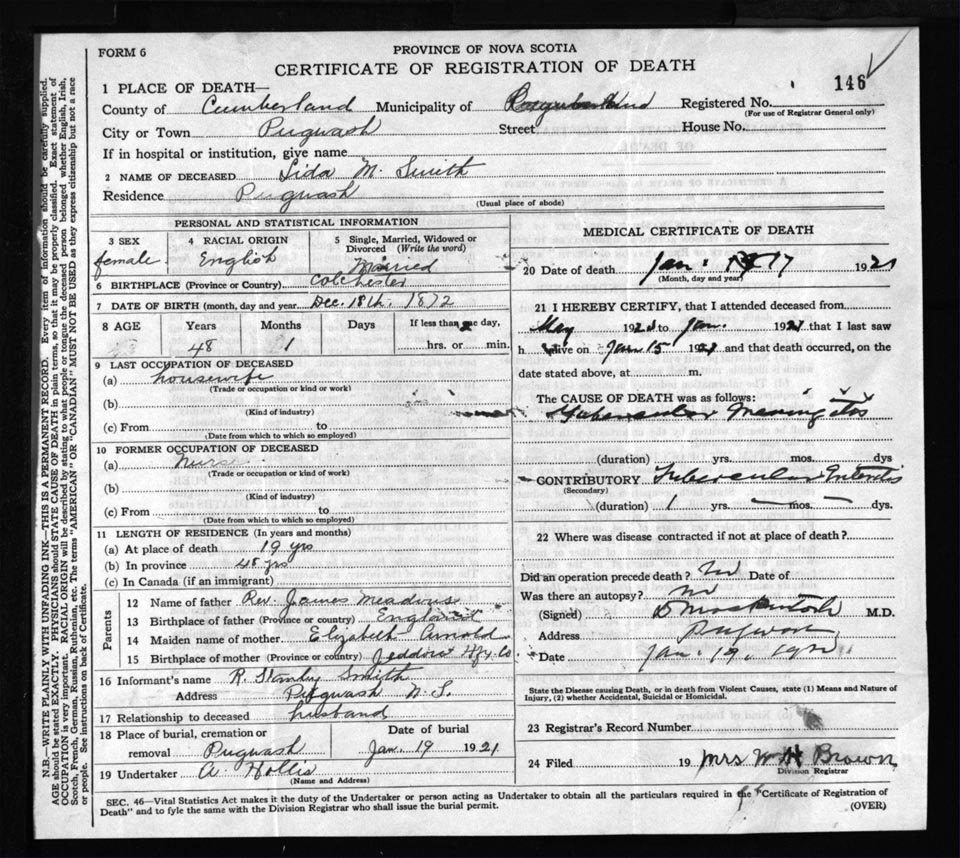 FORM 6
PROVINCE OF NOVA SCOTIA
CERTIFICATE OF REGISTRATION OF DEATH
146
1 PLACE OF DEATH—
County of Cumberland Municipality of Registered No.
(For use of Registrar General only)
City or Town Pugwash Street House No.
If in hospital or institution, give name
2 NAME OF DECEASED Lida M. Smith
Residence Pugwash
(Usual place of abode)
PERSONAL AND STATISTICAL INFORMATION
3 SEX female
4 RACIAL ORIGIN English
5 Single, Married, Widowed or Divorced (Write the word) Married
6 BIRTHPLACE (Province or Country) Colchester
7 DATE OF BIRTH (month, day and year) Dec. 18th. 1872
8 AGE Years Months Days If less than one day,
48 1 hrs. or min.
9 LAST OCCUPATION OF DECEASED
(a) housewife
(Trade or occupation or kind or work)
(b)
(Kind of industry)
(c) From to
(Date from which to which so employed)
10 FORMER OCCUPATION OF DECEASED
(a) Nurse
(Trade or occupation or kind or work)
(b)
(Kind of industry)
(c) From to
(Date from which to which so employed)
11 LENGTH OF RESIDENCE (In years and months)
(a) At place of death 19 yrs
(b) In province 48 yrs
(c) In Canada (if an immigrant)
Parents
12 Name of father Rev. James Meadows
13 Birthplace of father (Province or country) England
14 Maiden name of mother Elizabeth Arnold
15 Birthplace of mother (Province or country) Jeddore Hfx. Co
16 Informant's name R. Stanley Smith
Address Pugwash N. S.
17 Relationship to deceased husband
18 Place of burial, cremation or removal Pugwash Date of burial Jan. 19 1921
19 Undertaker A. Hollis
(Name and Address)
MEDICAL CERTIFICATE OF DEATH
20 Date of death Jan. 17 1921
(Month, day and year)
21 I HEREBY CERTIFY, that I attended deceased from
May 192 to Jan. 1921 that I last saw
h alive on Jan 15 1921 and that death occurred, on the
date stated above, at m.
The CAUSE OF DEATH was as follows:
Tubercular Meningitis
(duration) yrs. mos. dys
CONTRIBUTORY Tubercular Enteritis
(Secondary)
(duration) 1 yrs. — mos. — dys.
22 Where was disease contracted if not at place of death?
Did an operation precede death? no Date of
Was there an autopsy? no
(Signed) D Mackintosh M.D.
Address Pugwash
Date Jan. 19. 1921
State the Disease causing Death, or in death from Violent Causes, state (1) Means and Nature of
Injury, (2) whether Accidental, Suicidal or Homicidal.
23 Registrar's Record Number
24 Filed 19 Mrs W H Brown
Division Registrar
SEC. 46—Vital Statistics Act makes it the duty of the Undertaker or person acting as Undertaker to obtain all the particulars required in the "Certificate of Registration of
Death" and to fyle the same with the Division Registrar who shall issue the burial permit. (OVER)
N.B.—WRITE PLAINLY WITH UNFADING INK—THIS IS A PERMANENT RECORD. Every item of information should be carefully supplied.
AGE should be stated EXACTLY. PHYSICIANS should STATE CAUSE OF DEATH in plain terms, so that it may be properly classified. Exact statement of
OCCUPATION is very important. RACIAL ORIGIN will be described by stating to what people or tongue the deceased person belonged, whether English, Irish,
Scotch, French, German, Russian, Ruthenian, etc. The terms "AMERICAN" OR "CANADIAN" MUST NOT BE USED as they express citizenship but not a race
or people. See instructions on back of Certificate.